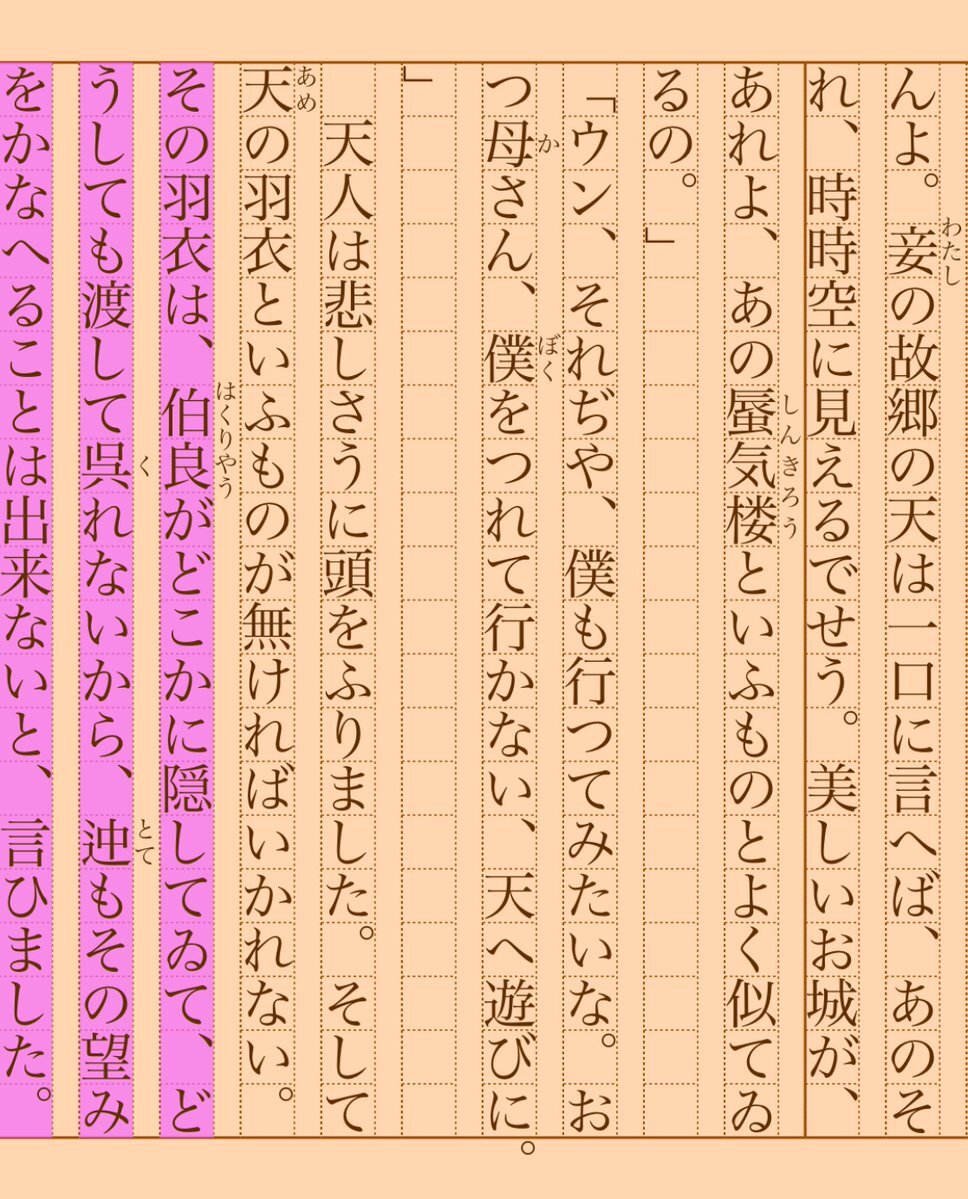 んよ。妾の故郷の天は一口に言へば、あのそ
れ、時時空に見えるでせう。美しいお城が、
あれよ、あの蜃気楼といふものとよく似てゐ
るの。」
「ウン、それぢや、僕も行つてみたいな。お
つ母さん、僕をつれて行かない、天へ遊びに。
」
天人は悲しさうに頭をふりました。そして
天の羽衣といふものが無ければいかれない。
その羽衣は、伯良がどこかに隠してゐて、ど
うしても渡して呉れないから、迚もその望み
をかなへることは出来ないと、言ひました。